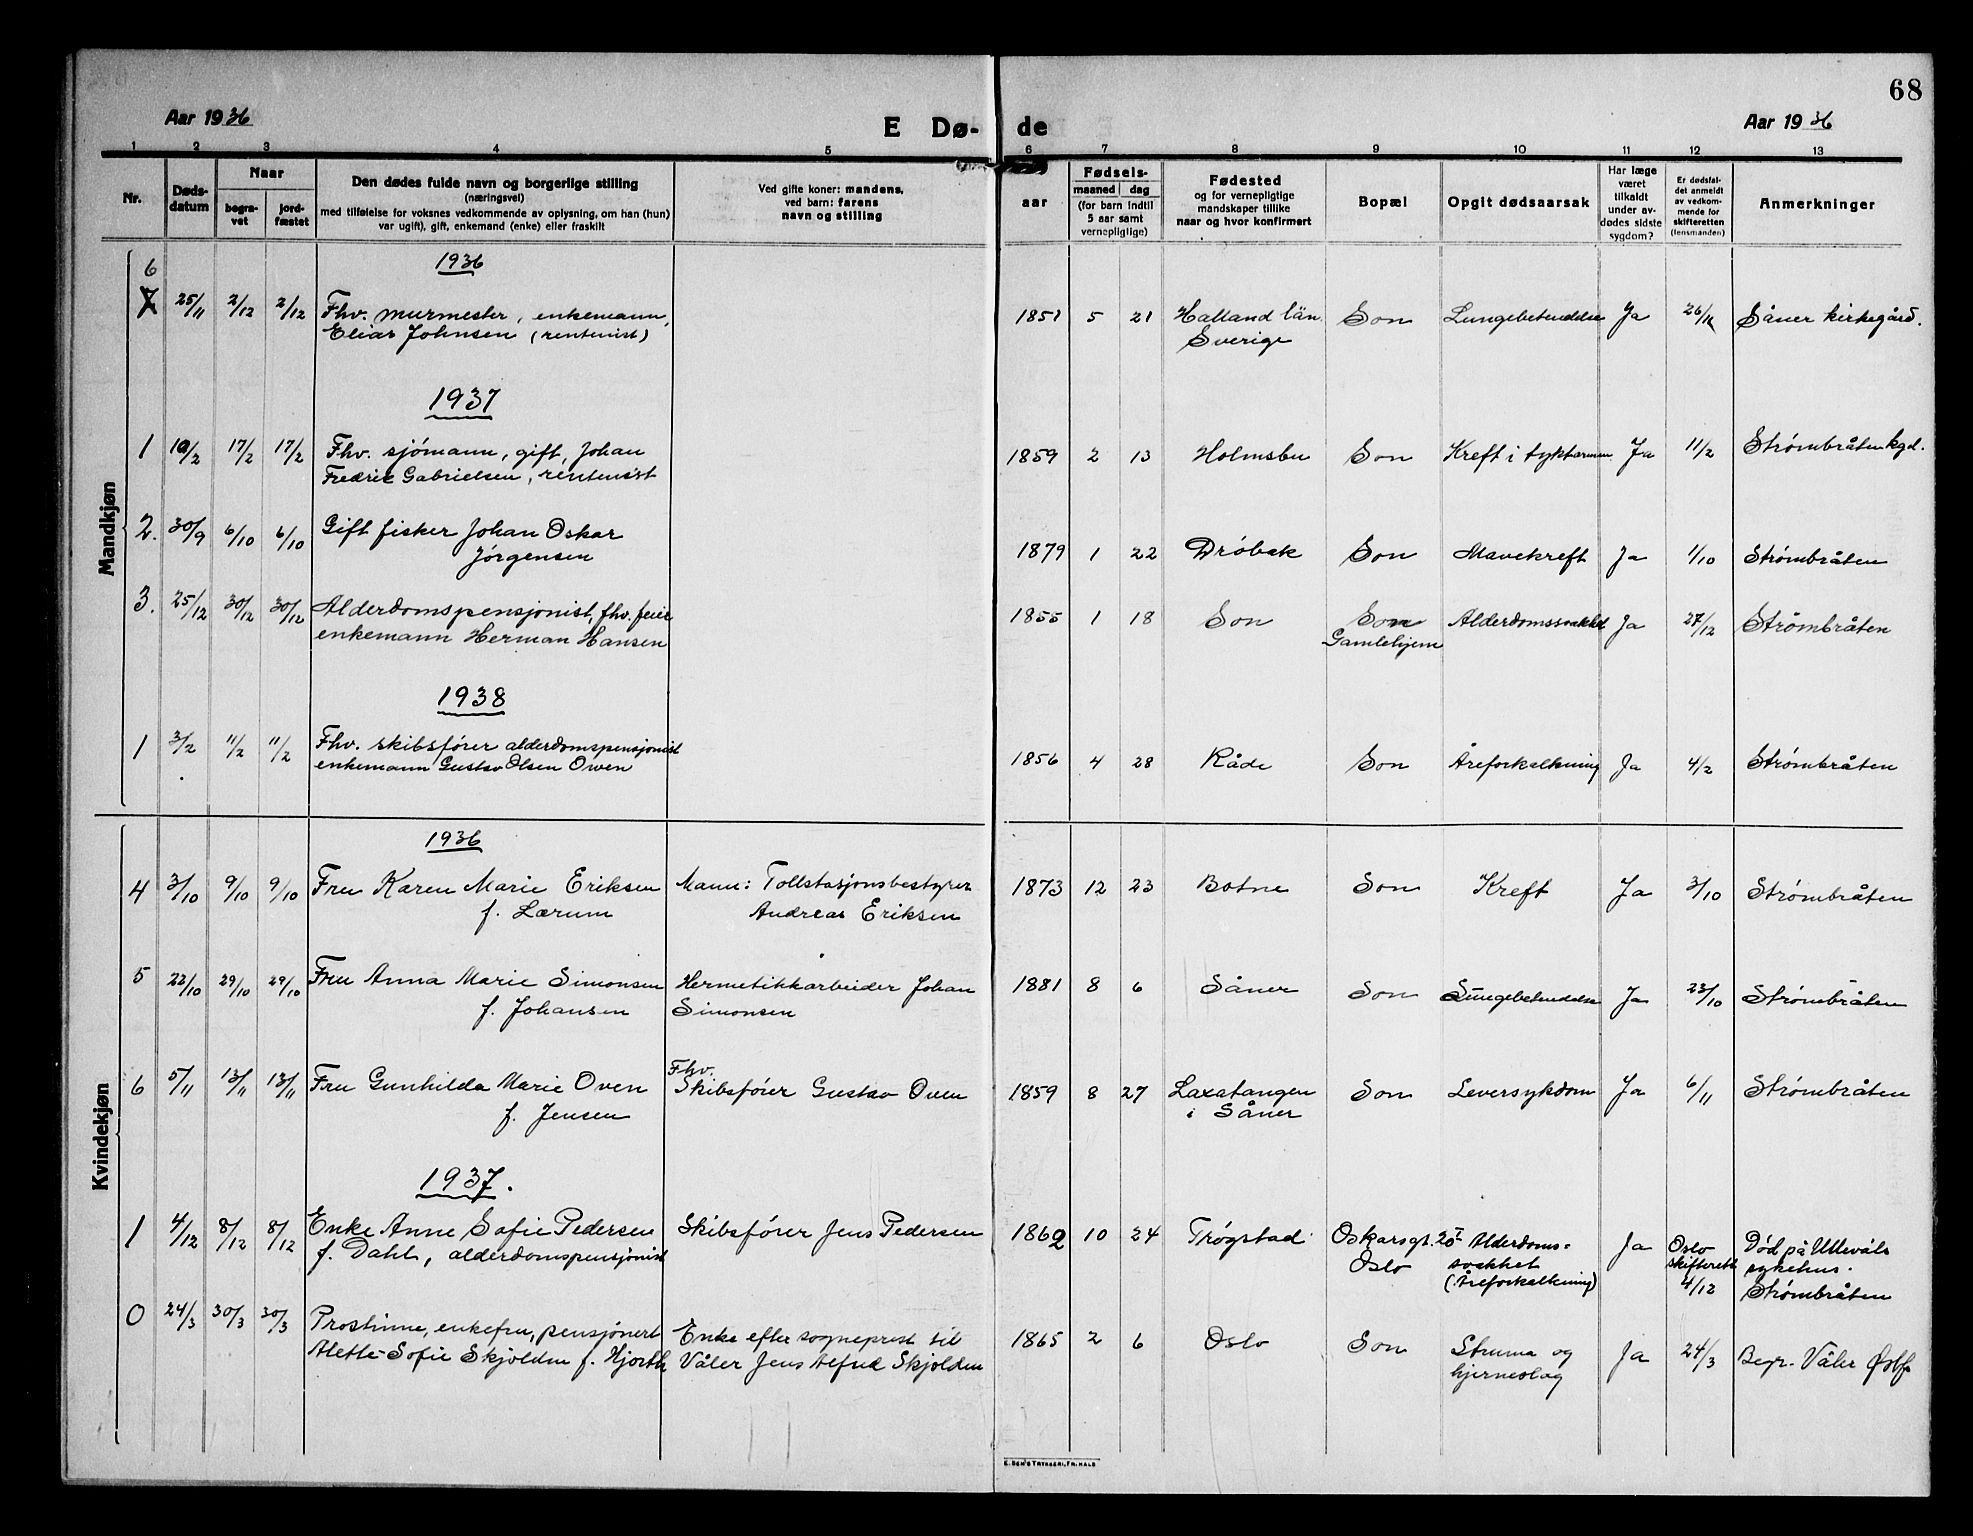 68
Aar 1936
E Dø-
de
Aar 1936
1 2 3 4 5 6 7 8 9 10 11 12 13
Nr.
Døds-
datum
Naar
begra-
vet
jord-
fæstet
Den dødes fulde navn og borgerlige stilling
(næringsvei)
med tilføielse for voksnes vedkommende av oplysning, om han (hun)
var ugift), gift, enkemand (enke) eller fraskilt
Ved gifte koner: mandens,
ved barn: farens
navn og stilling
aar
Fødsels-
maaned dag
(for barn indtil
5 aar samt
vernepligtige)
Fødested
og for vernepligtige
mandskaper tillike
naar og hvor konfirmert
Bopæl
Opgit dødsaarsak
Har læge
været
tilkaldt
under av-
dødes sidste
sygdom?
Er dødsfal-
det anmeldt
av vedkom-
mende for
skifteretten
(lensmanden)
Anmerkninger
Mandkjøn
1936
6
7 25/11 2/12 2/12 Fhv. murmester, enkemann, 1851 5 21 Halland län Son Lungebetendelse Ja 26/11 Såner kirkegård.
Elias Johnsen (rentenist) Sverige
1937
1 10/2 17/2 17/2 Fhv. sjómann, gift, Johan 1859 2 13 Holmsbu Son Kreft i tyktarmen Ja 11/2 Strømbråten kgd.
Fredrik Gabrielsen, rentenist
2. 30/9 6/10 6/10 Gift fisker Johan Oskar 1879 1 22 Dróbak Son Mavekreft Ja 1/10 Strømbråten
Jórgensen
3. 25/12 30/12 30/12 Alderdomspensjonist, fhv. feier 1855 1 18 Son Son Alderdomssvakhet Ja 27/12 Strømbråten
enkemann Herman Hansen Gamlehjem
1938
1 3/2 11/2 11/2 Fhv. skibsfórer alderdomspensjonist 1856 4 28 Råde Son Åreforkalkning Ja 4/2 Strømbråten
enkemann Gustav Olsen Owen
Kvindekjøn
1936
4 3/10 9/10 9/10 Fru Karen Marie Eriksen Mann: Tollstasjonsbestyrer 1873 12 23 Botne Son Kreft Ja 3/10 Strømbråten
f. Lærum Andreas Eriksen
5 22/10 29/10 29/10 Fru Anna Marie Simonsen Hermetikkarbeider Johan 1881 8 6 Såner Son Lungebetendelse Ja 23/10 Strømbråten
f. Johansen Simonsen
Fhv.
6 5/11 13/11 13/11 Fru Gunhilda Marie Oven Skibsfóier Gustav Oven 1859 8 27 Laxatangen Son Leversykdom Ja 6/11 Strømbråten
f. Jensen i Såner
1937.
1 4/12 8/12 8/12 Enke Anne Sofie Pedersen Skibsfórer Jens Pedersen 1862 10 24 Trógstad Oskarsgt. 20 I Alderdoms- Ja Oslo Død på Ullevåls
f. Dahl, alderdomspensjonist Oslo svakhet skifterett sykehus.
(Åreforkalkning) 4/12 Strømbråten
0 24/3 30/3 30/3 Prostinne, enkefru, pensjónert Enke efter sogneprest til 1865 2 6 Oslo Son Struma og Ja 24/3 Begr. Våler Østf.
Alette Sofie Skjolden f. Hjorth Våler Jens Skjolden hjerneslag
E. SEM'S TRYKKERI, FR.HALD